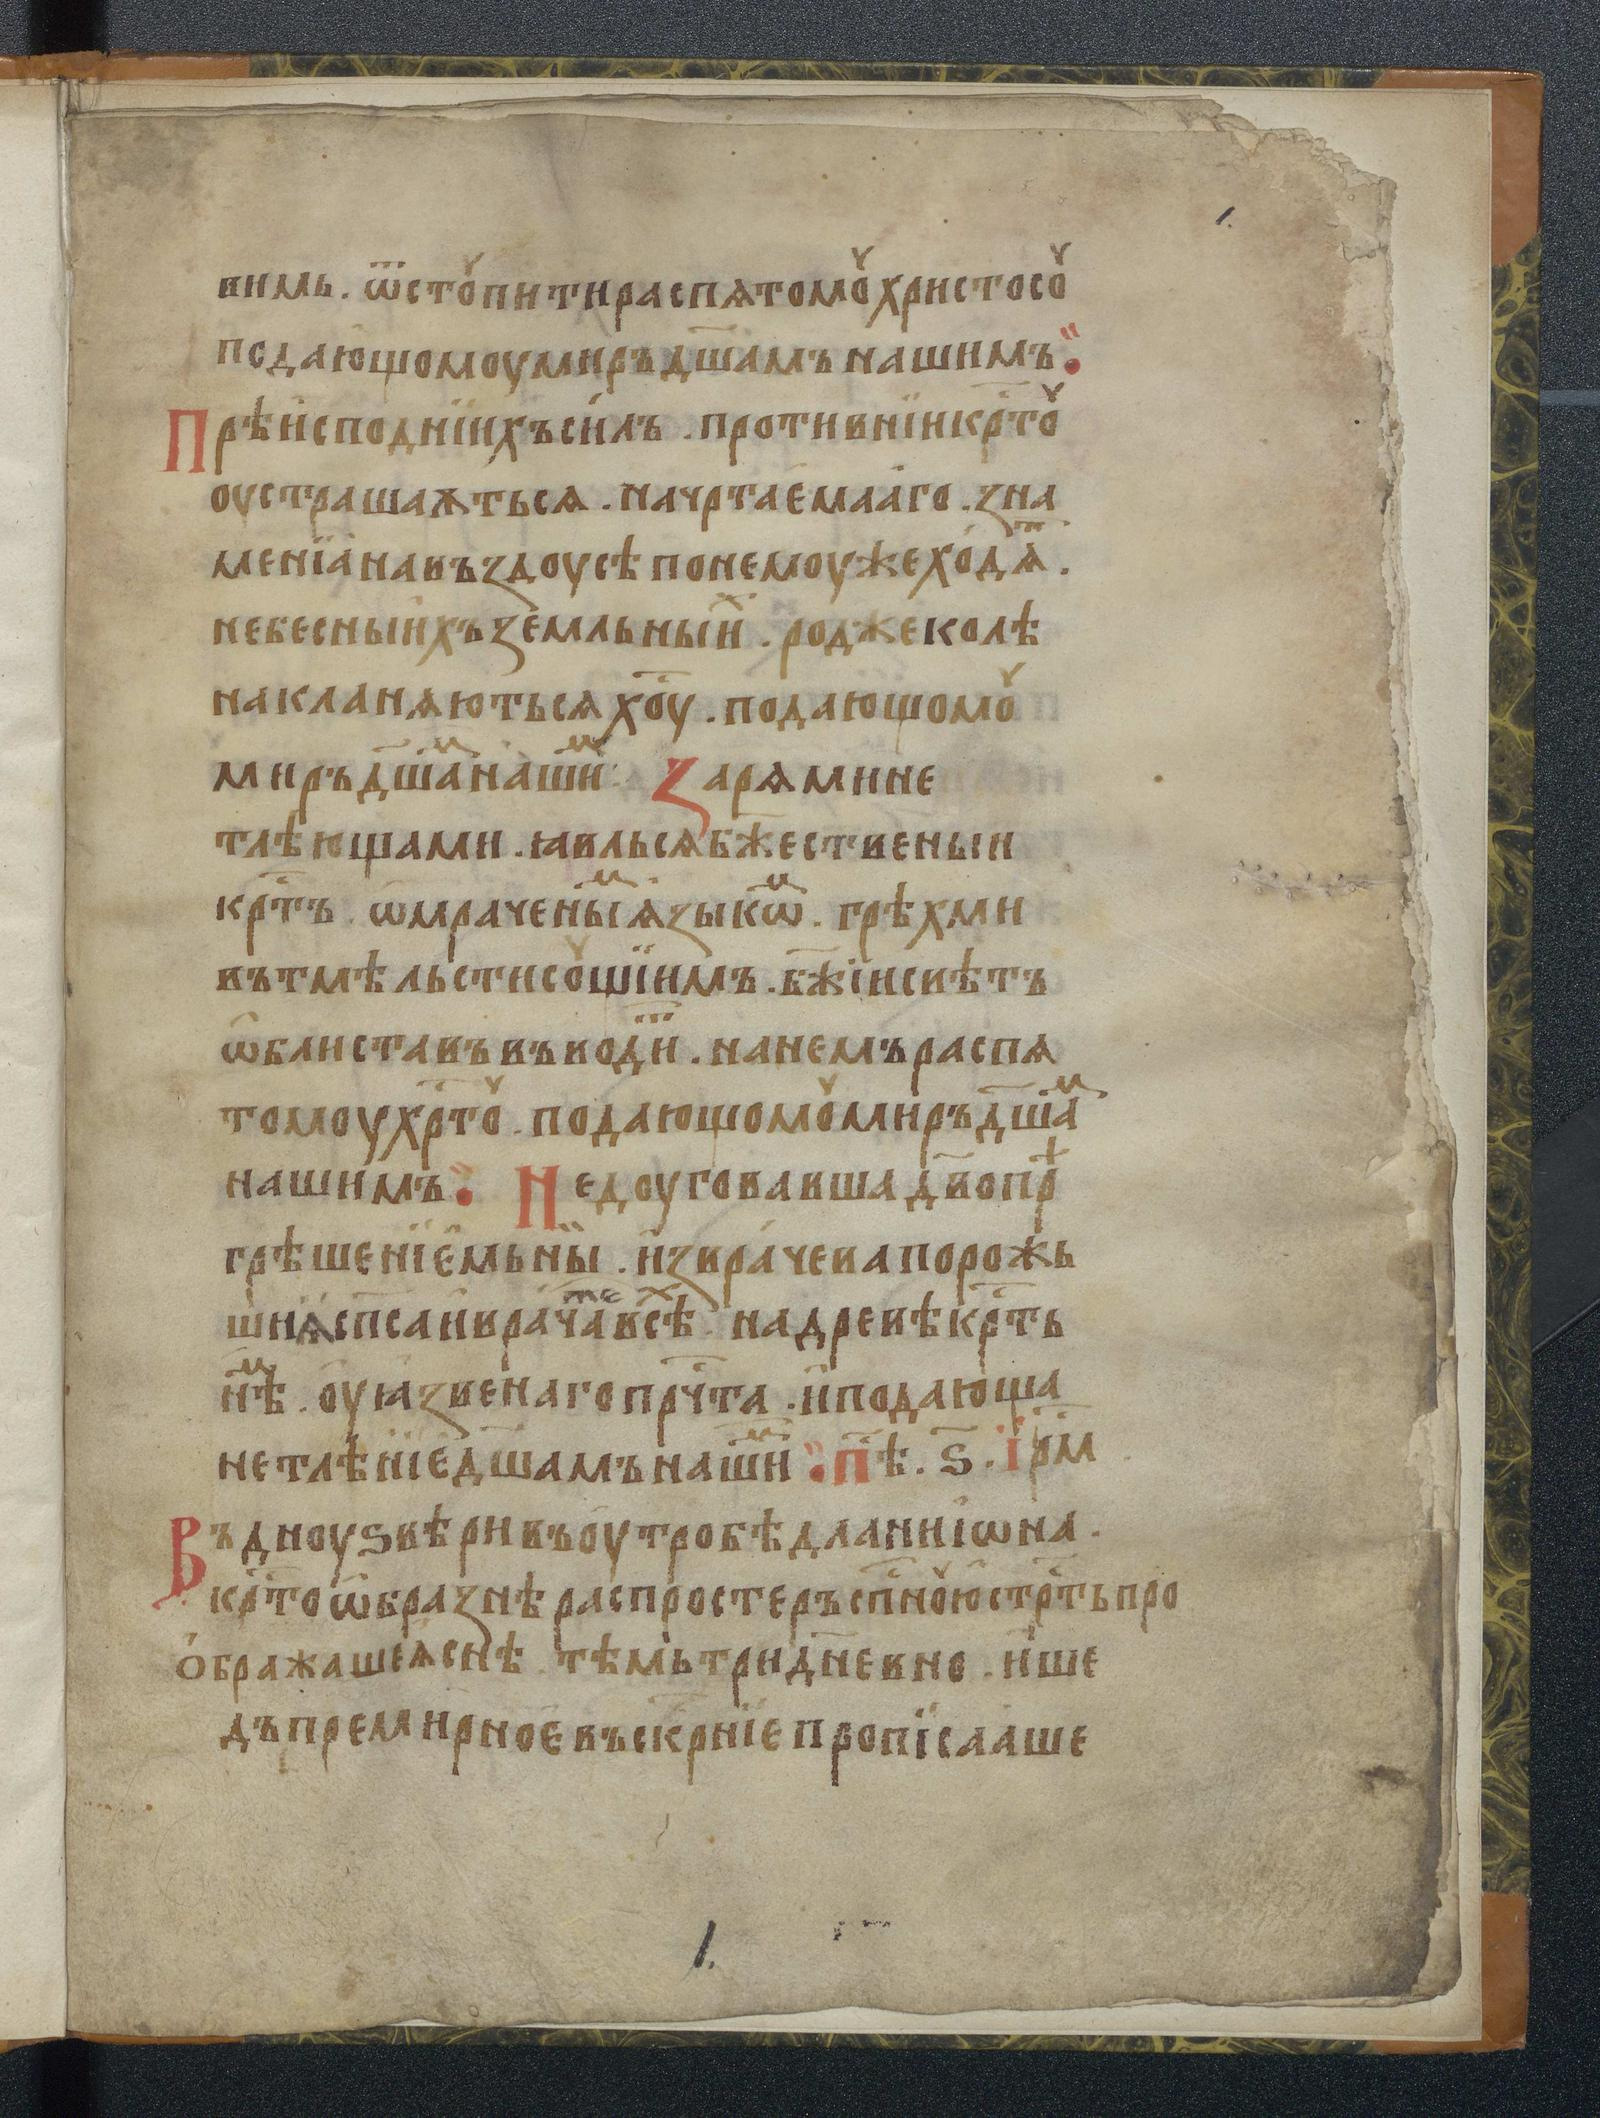 1.
вимь . ѿстꙋпитираспѧтомꙋхристосꙋ
подающомоумиръдш҃амънашимъ
Прѣисподнїихъсилъ . противнїикр҃тꙋ
оустрашаѫтьсѧ . начртаемааго . зна
менїанавъздоусѣпонемоужеходѧ҃ .
небесныихъземльныи҃ . роджеколѣ
накланѧютьсѧхо҃у . подающомꙋ
миръдш҃анаши Зарѧмине
тлѣющами . ꙗвильсѧбж҃ественыи
кр҃тъ . ѡмраченыⷨѧзыкѡⷨ . грѣхми
вътмѣльстисꙋшїимъ . бж҃їисвѣтъ
ѡблиставъвъводи . нанемъраспѧ
томоухр҃тꙋ . подающомꙋмиръдш҃аⷨ
нашимъ Недоуговавшадв҃опр
грѣшенїемьны . изврачевапорожь
шиѧсп҃саиврачавсѣ . надревѣкр҃ть
нѣⷨ . оуꙗзвенагопрч҃та . иподающа
нетлѣнїедш҃амънашиⷨ п҃ѣ . ѕ . їр҃м
Въдноуѕвѣривъоутробѣдланиїѡна .
кр҃тоѡбразнѣраспростеръсп҃нꙋюстр҃тьпро
ображашеѧснѣ . тѣмьтридн҃евно . ише
дъпремирноевъскр҃нїепропїсааше
1.